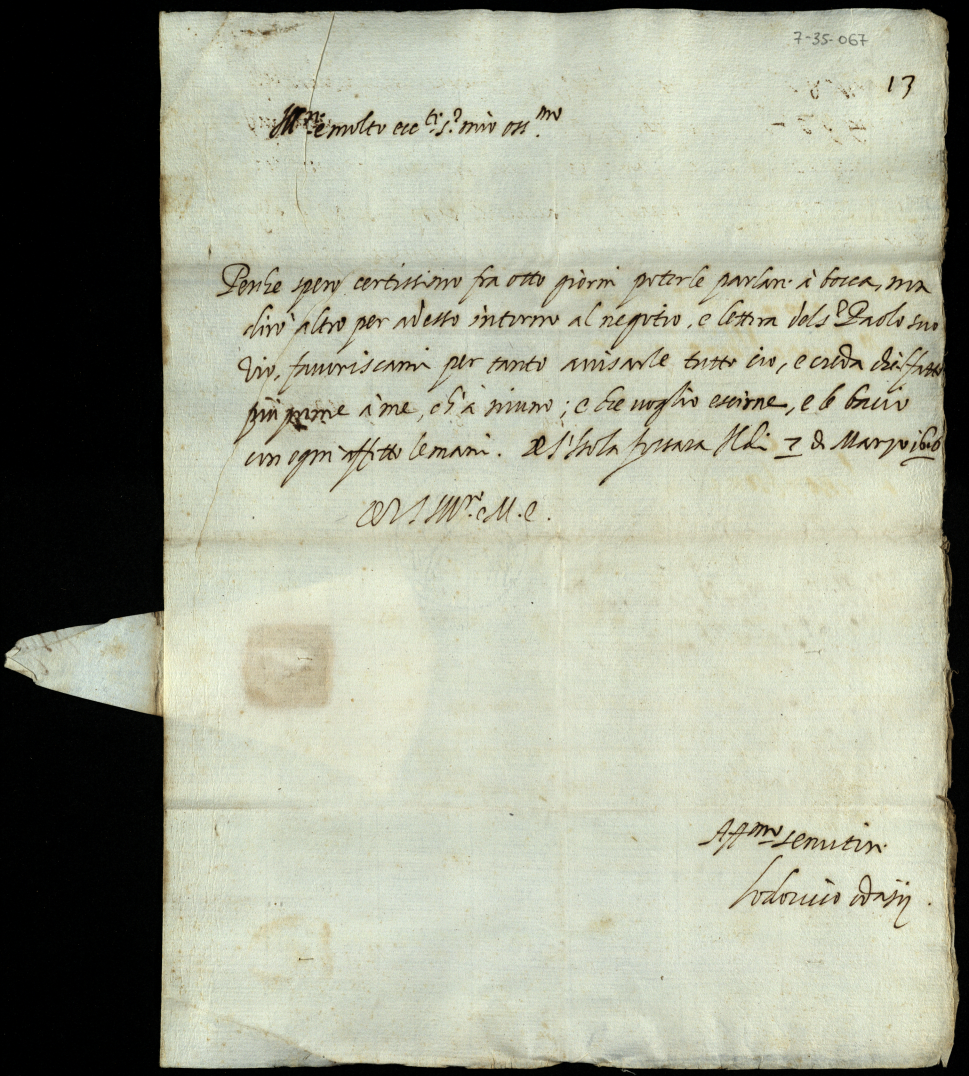 7-35-067
13
Ill.re e molto ecc.te s.r mio oss.mo
Perche spero certissimo fra otto giorni poterle parlar à bocca, non
dirò altro per adesso intorno al negotio, e lettera del s.r Paolo suo
Zio, favoriscami per tanto avisarle tutto ciò, e creda che
più preme à me, ch'à niuno; e che voglio escirne, e le bacio
con ogni affetto le mani. Di 7 di Marzo
Di V.S. Ill.re e M. E.
Aff.mo servitor
Lodovico